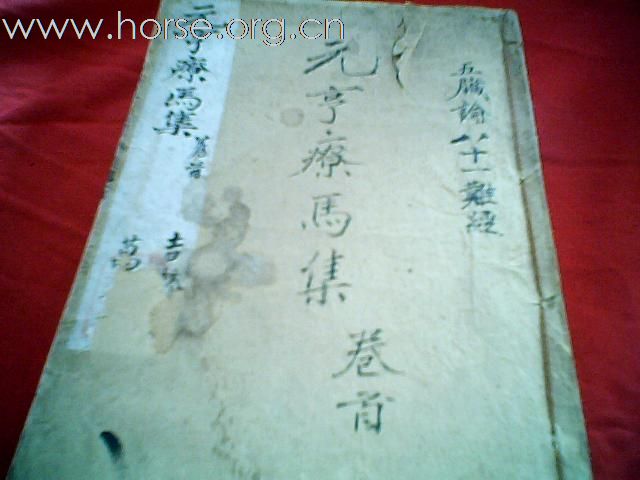 www.horse.org.cn
五臟論 八十一難經
元亨療馬集 卷首
元亨療馬集 卷首